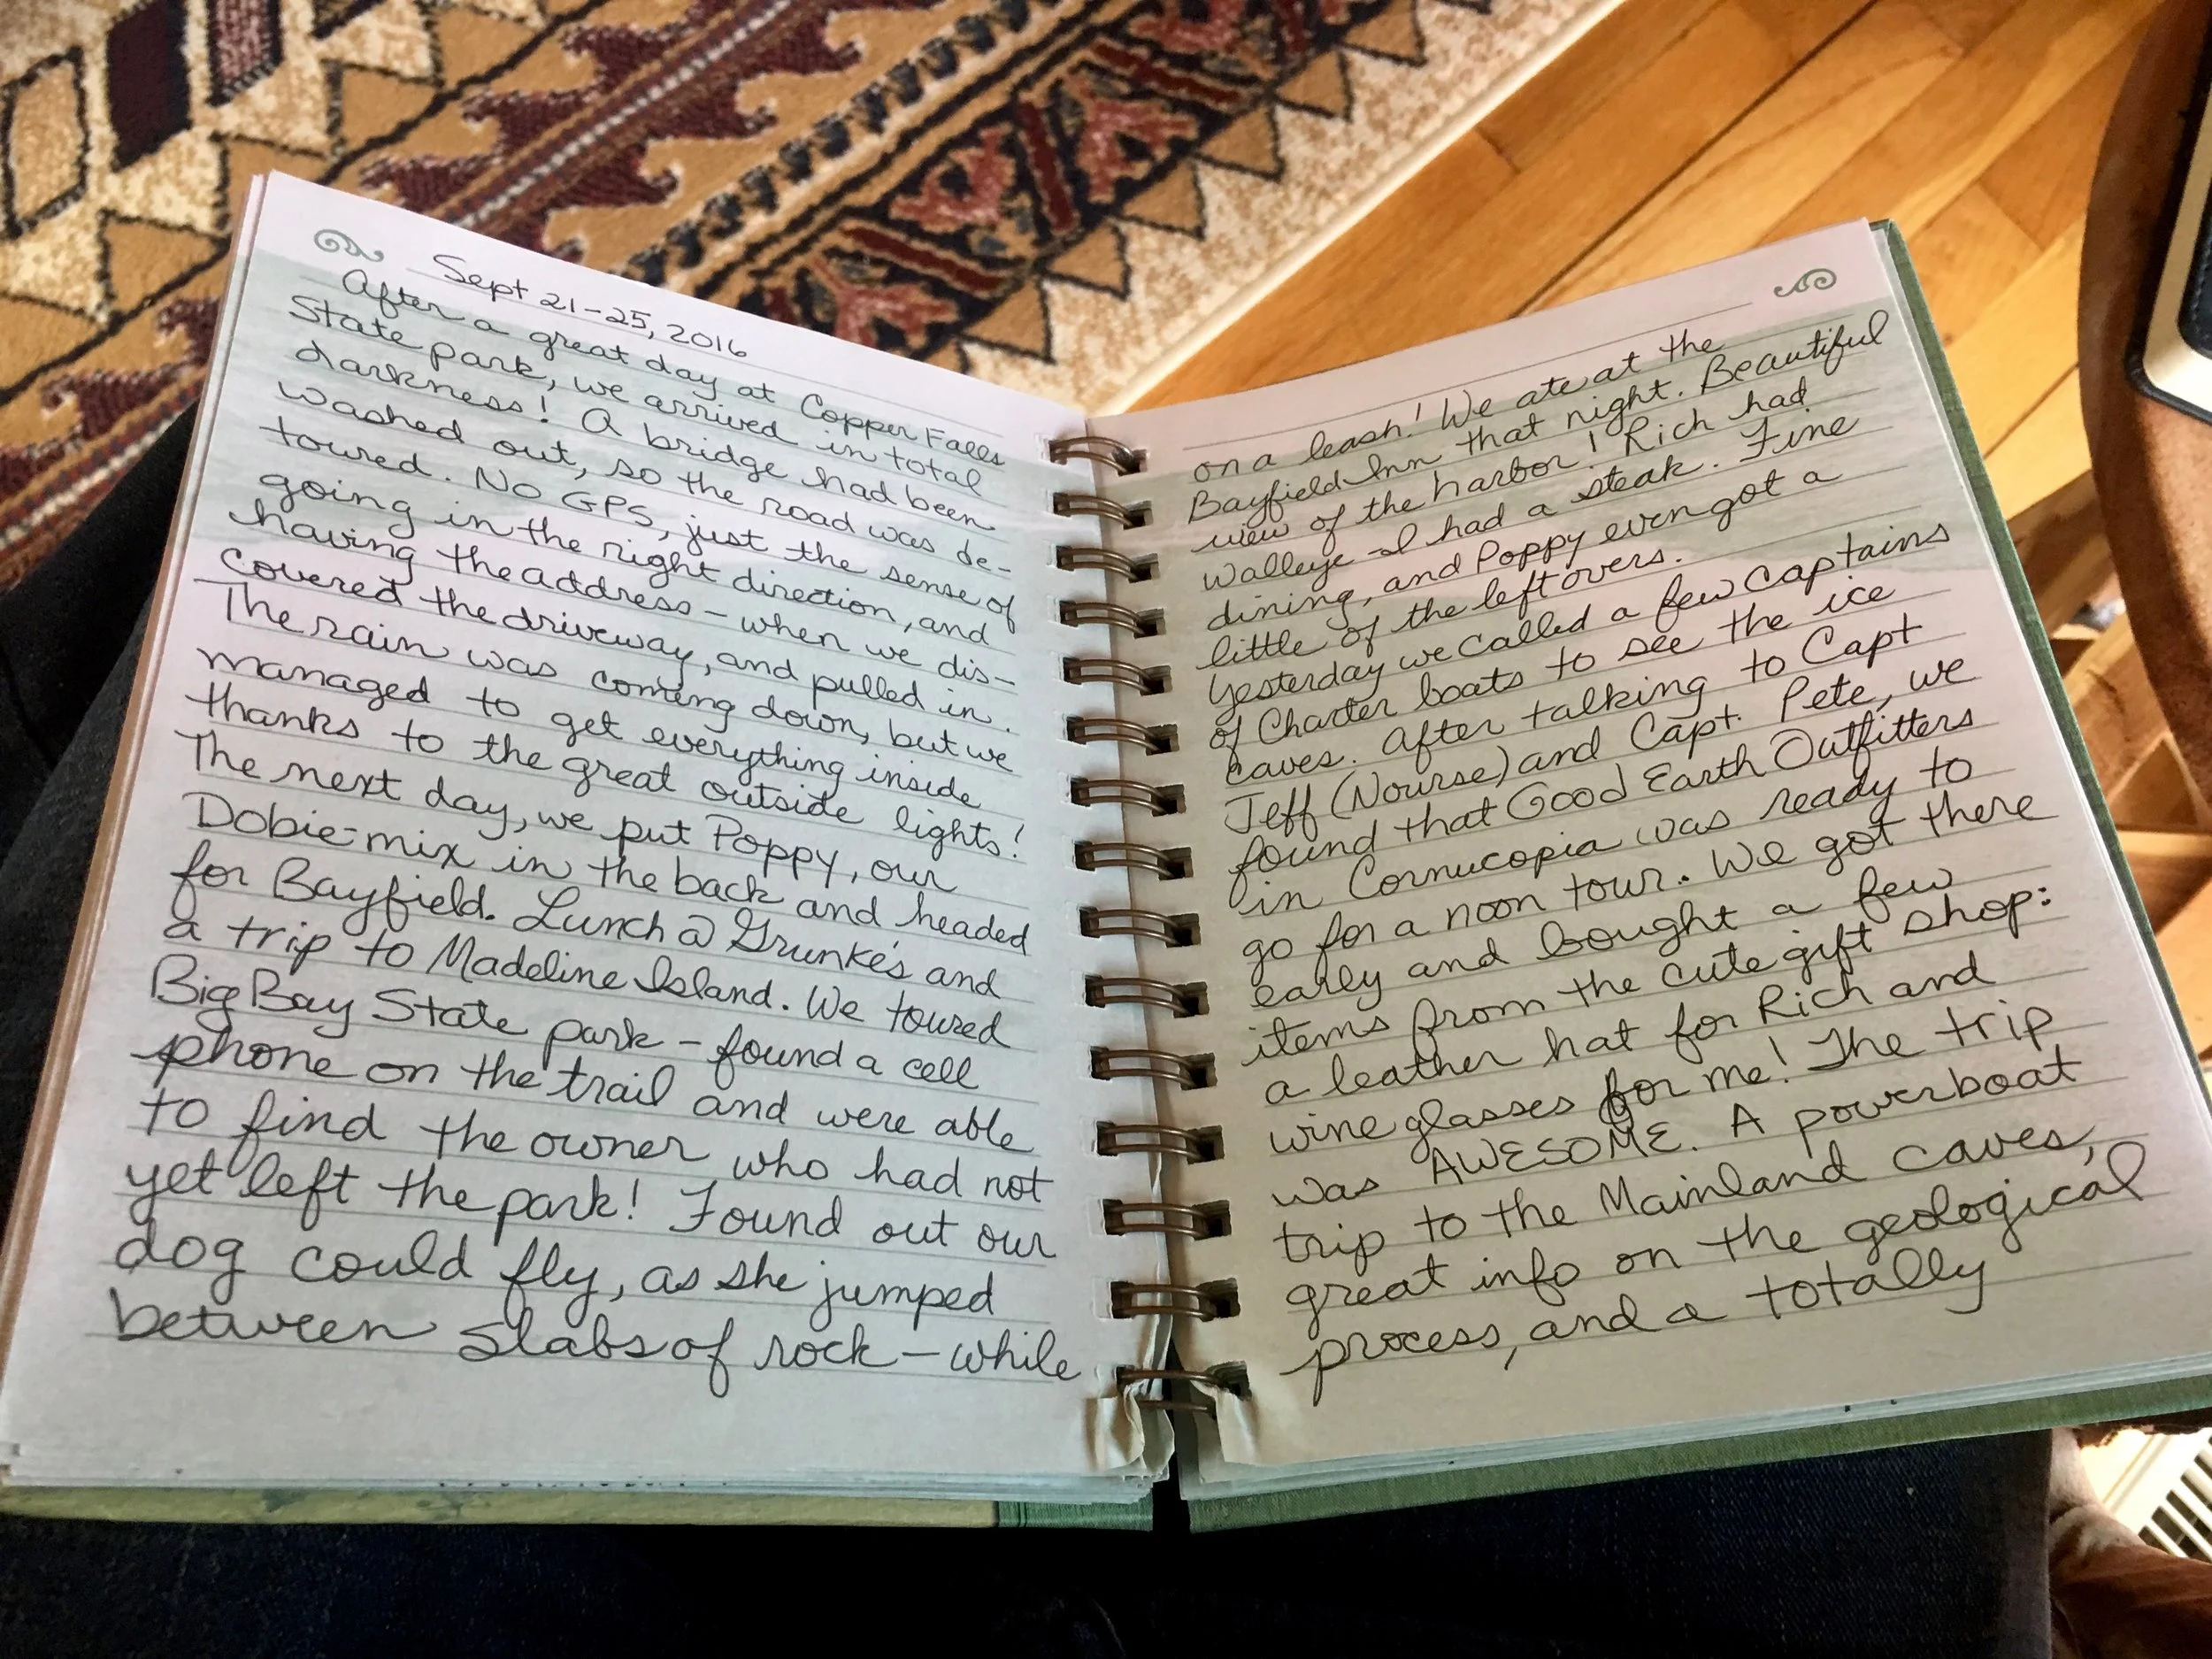 Sept 21-25, 2016
After a great day at Copper Falls
State park, we arrived in total
darkness! A bridge had been
washed out, so the road was de-
toured. No GPS, just the sense of
going in the right direction, and
having the address - when we dis-
covered the driveway, and pulled in.
The rain was coming down, but we
managed to get everything inside
thanks to the great outside lights!
The next day, we put Poppy, our
Dobie-mix in the back and headed
for Bayfield. Lunch @ Grunke's and
a trip to Madeline Island. We toured
Big Bay State park - found a cell
phone on the trail and were able
to find the owner who had not
yet left the park! Found out our
dog could fly, as she jumped
between slabs of rock - while
on a leash! We ate at the
Bayfield Inn that night. Beautiful
view of the harbor! Rich had
Walleye - I had a steak. Fine
dining, and Poppy even got a
little of the leftovers.
Yesterday we called a few captains
of Charter boats to see the ice
caves. After talking to Capt
Jeff (Nourse) and Capt. Pete, we
found that Good Earth Outfitters
in Cornucopia was ready to
go for a noon tour. We got there
early and bought a few
items from the cute gift shop:
a leather hat for Rich and
wine glasses for me! The trip
was AWESOME. A powerboat
trip to the Mainland caves,
great info on the geological
process, and a totally